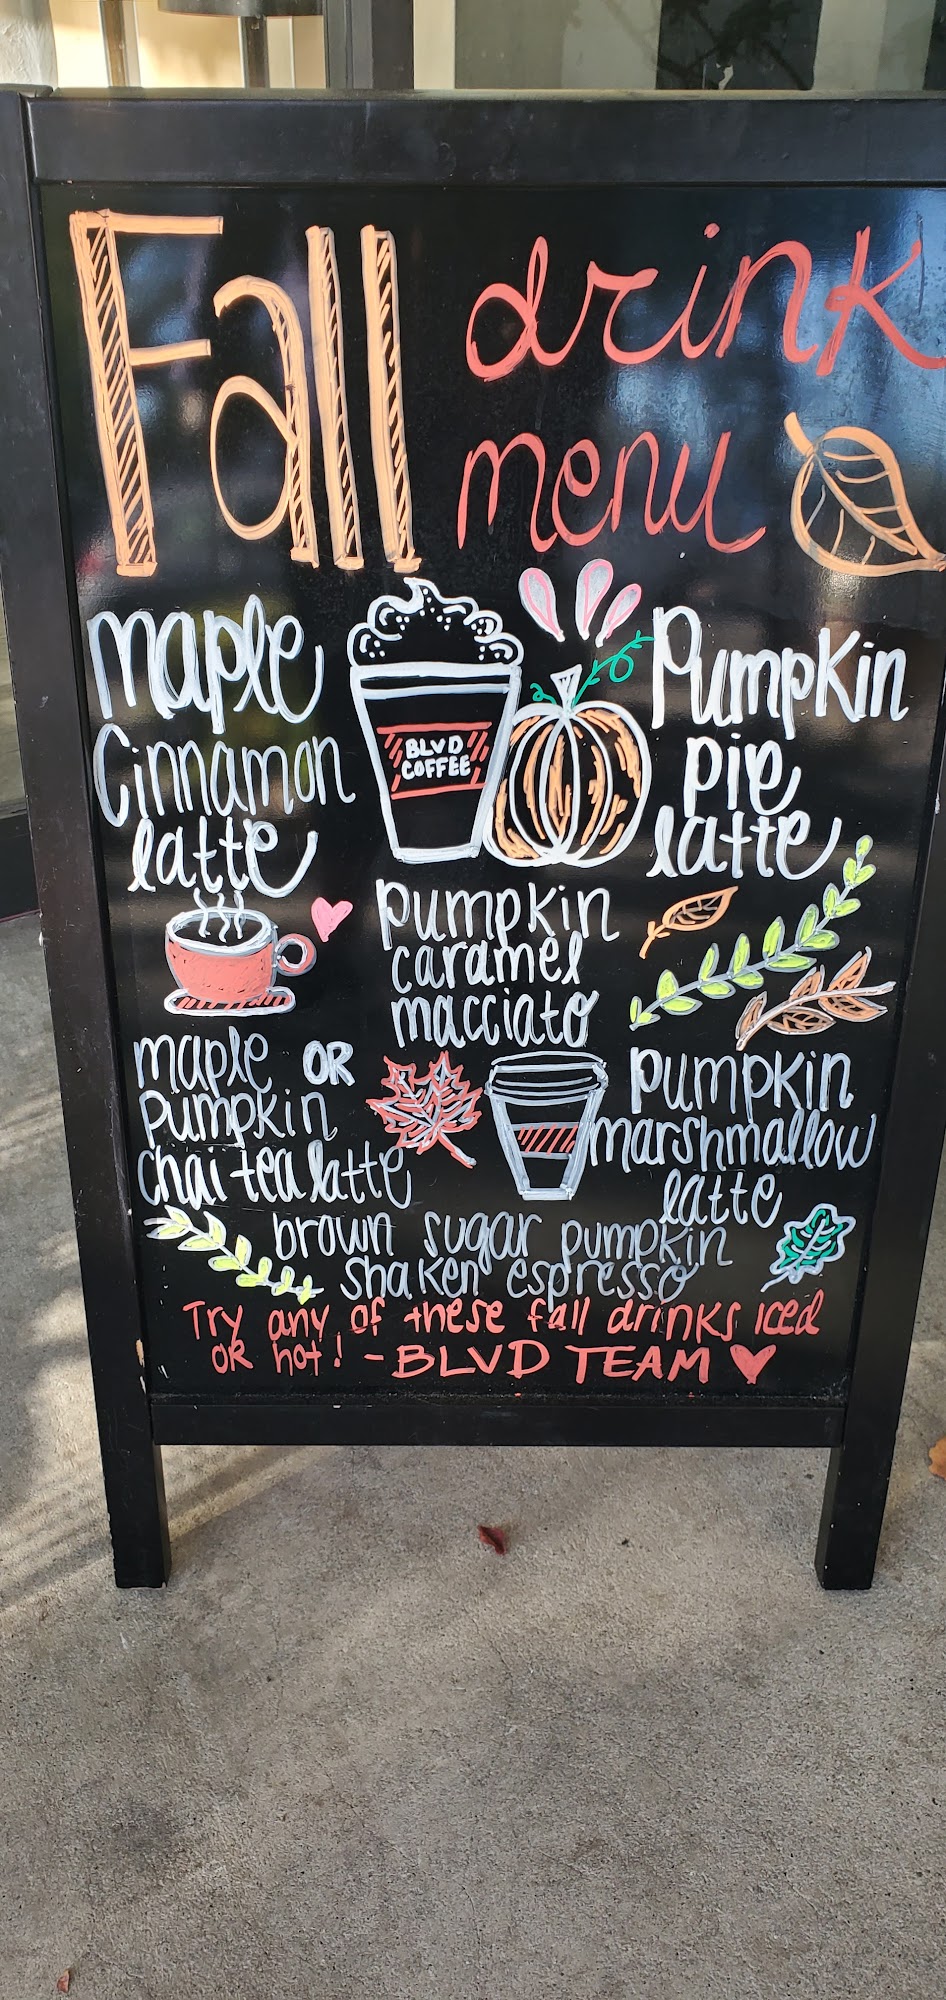 Fall drink
menu
maple
Cinnamon
latte
BLVD
COFFEE
Pumpkin
pie
latte
pumpkin
caramel
macciato
maple OR
pumpkin
chai tea latte
pumpkin
marshmallow
latte
brown sugar pumpkin
shaken espresso
Try any of these fall drinks iced
OR hot! - BLVD TEAM